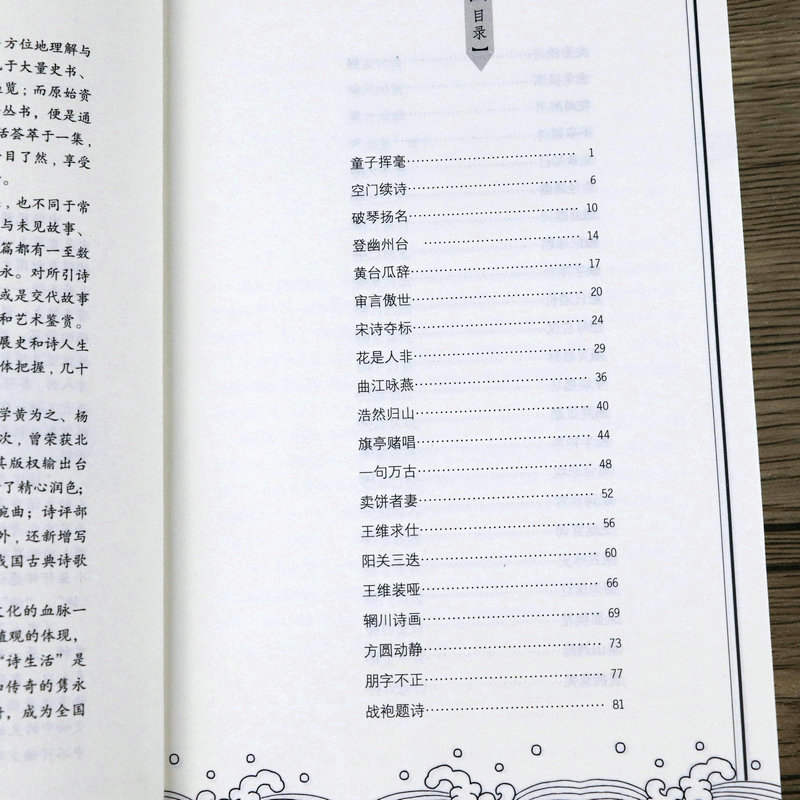 方位地理解与
于大量史书、
览；而原始资
丛书，便是通
活荟萃于一集，
目了然，享受
。
，也不同于常
与未见故事、
篇都有一至数
永。对所引诗
或是交代故事
和艺术鉴赏。
展史和诗人生
体把握，几十
学黄为之、杨
次，曾荣获北
其版权输出台
了精心润色；
婉曲；诗评部
外，还新增写
我国古典诗歌
文化的血脉一
值观的体现，
“诗生活”是
和传奇的隽永
，成为全国
目录】
童子挥毫……………………1
空门续诗……………………6
破琴扬名……………………10
登幽州台……………………14
黄台瓜辞……………………17
审言傲世……………………20
宋诗夺标……………………24
花是人非……………………29
曲江咏燕……………………36
浩然归山……………………40
旗亭赌唱……………………44
一句万古……………………48
卖饼者妻……………………52
王维求仕……………………56
阳关三迭……………………60
王维装哑……………………66
辋川诗画……………………69
方圆动静……………………73
朋字不正……………………77
战袍题诗……………………81